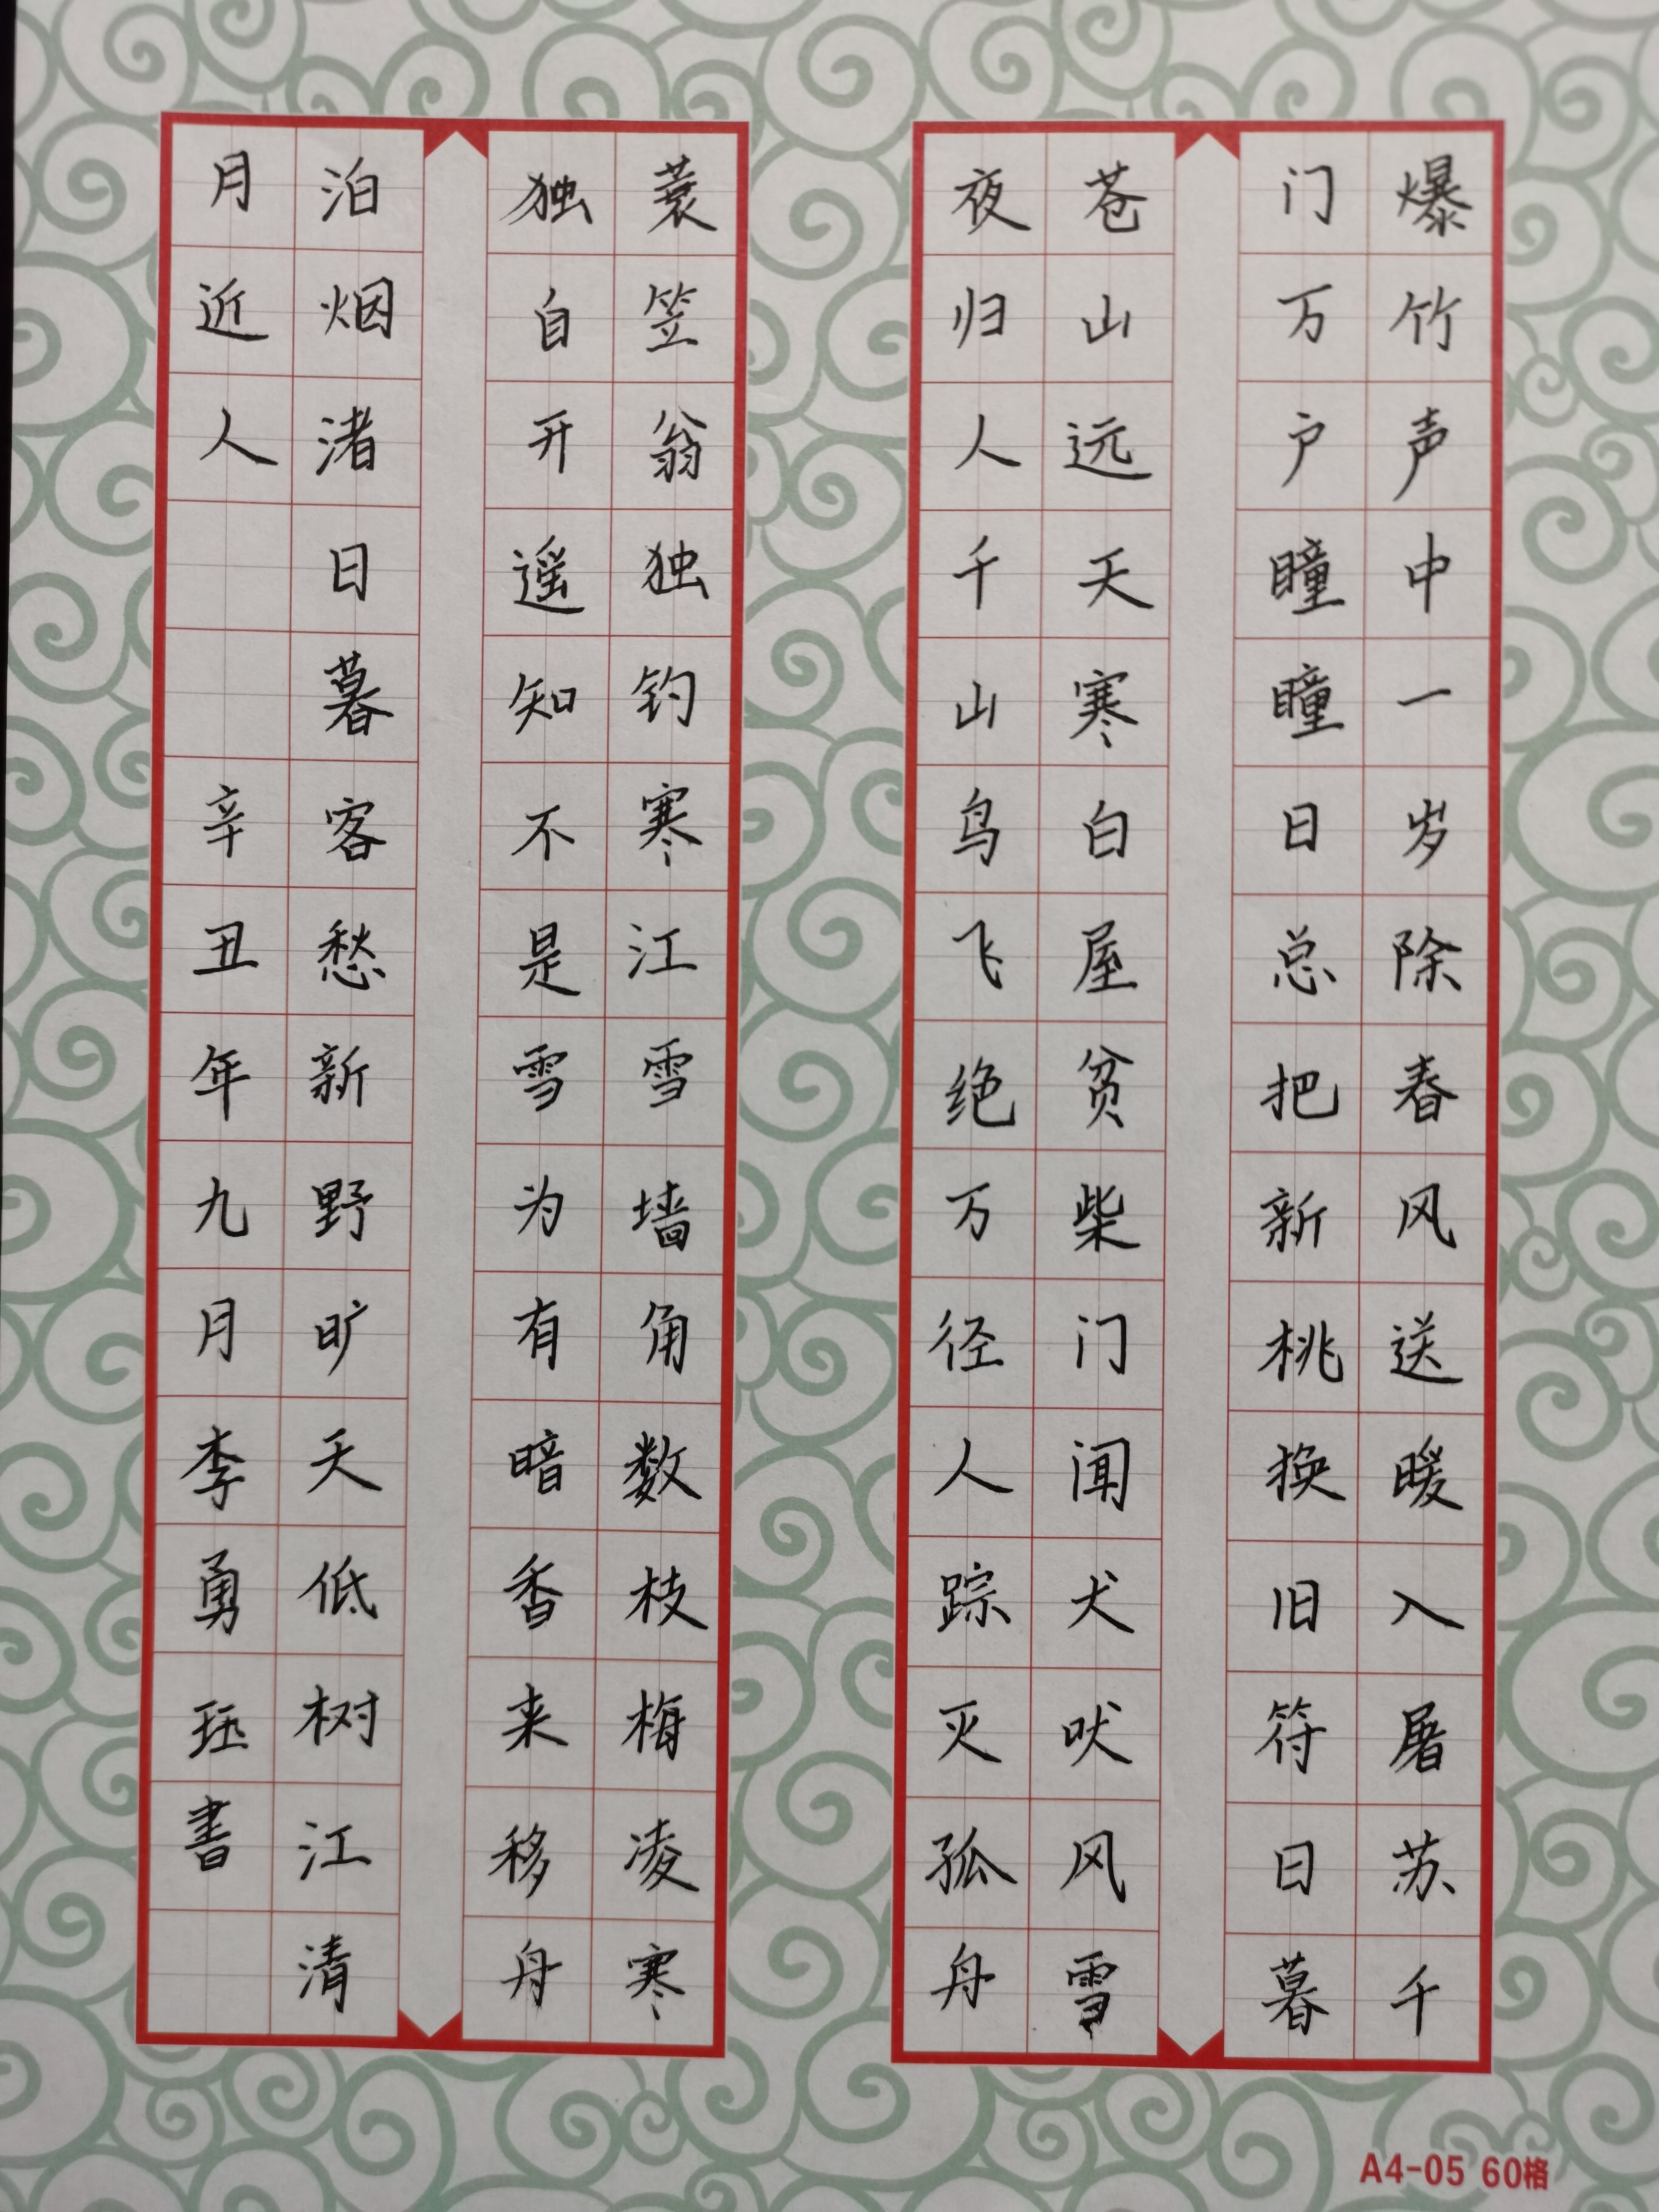 爆竹声中一岁除春风送暖入屠苏千
门万户瞳瞳日总把新桃换旧符日暮
苍山远天寒白屋贫柴门闻犬吠风雪
夜归人千山鸟飞绝万径人踪灭孤舟
蓑笠翁独钓寒江雪墙角数枝梅凌寒
独自开遥知不是雪为有暗香来移舟
泊烟渚日暮客愁新野旷天低树江清
月近人 辛丑年九月李勇珏書
A4-05 60格